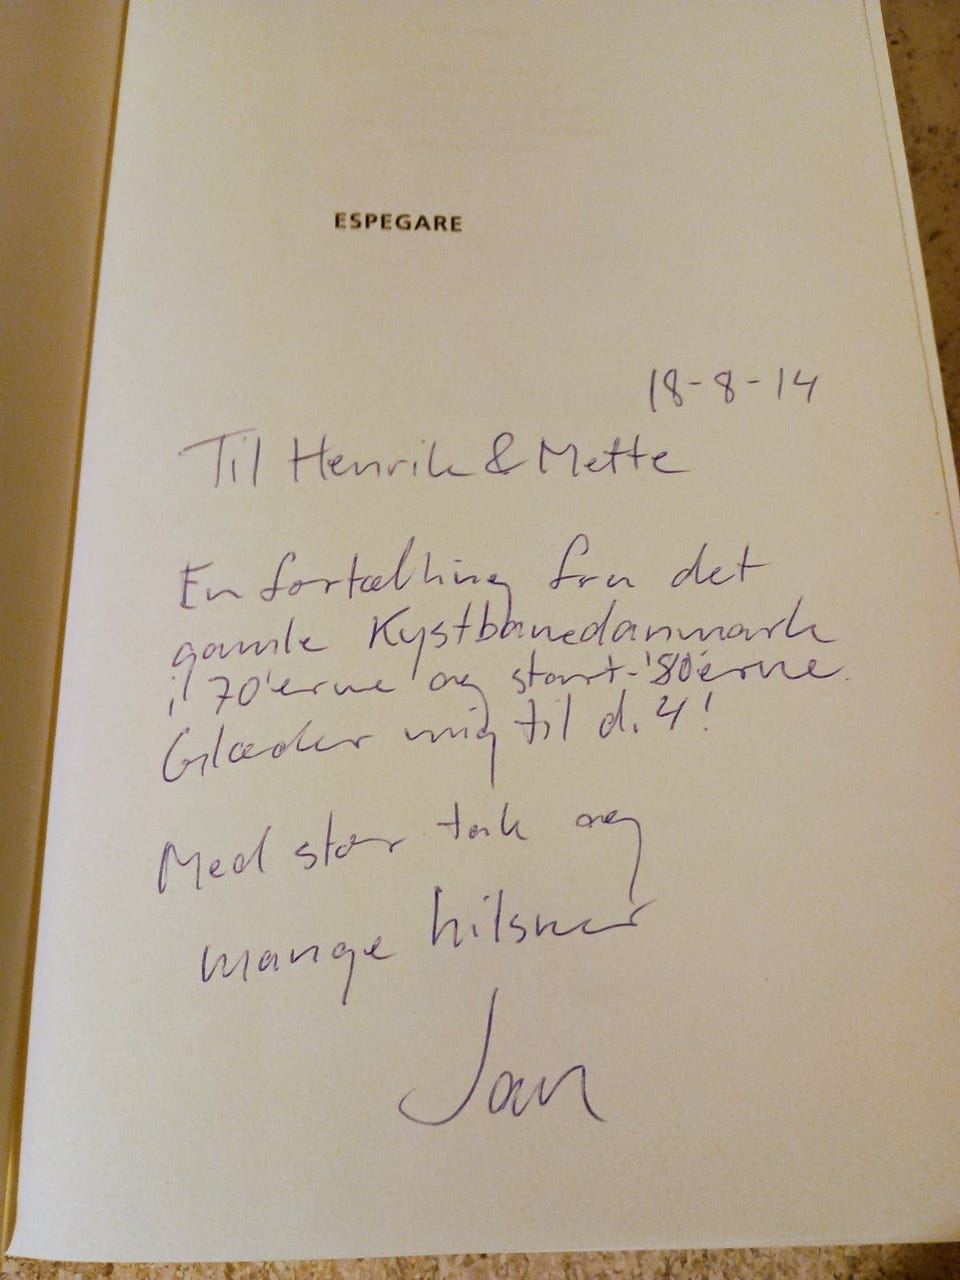 ESPEGARE
18-8-14
Til Henrik & Mette
En fortælling fra det
gamle Kystbanedanmark
i 70'erne og start-'80'erne.
Glæder mig til d. 4!
Med stor tak og
mange hilsner
Jan